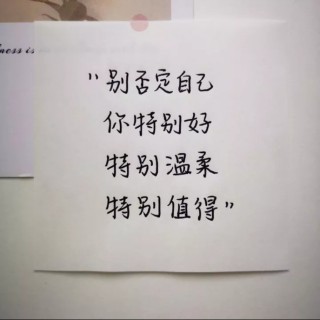 ness is
"别否定自己
你特别好
特别温柔
特别值得"